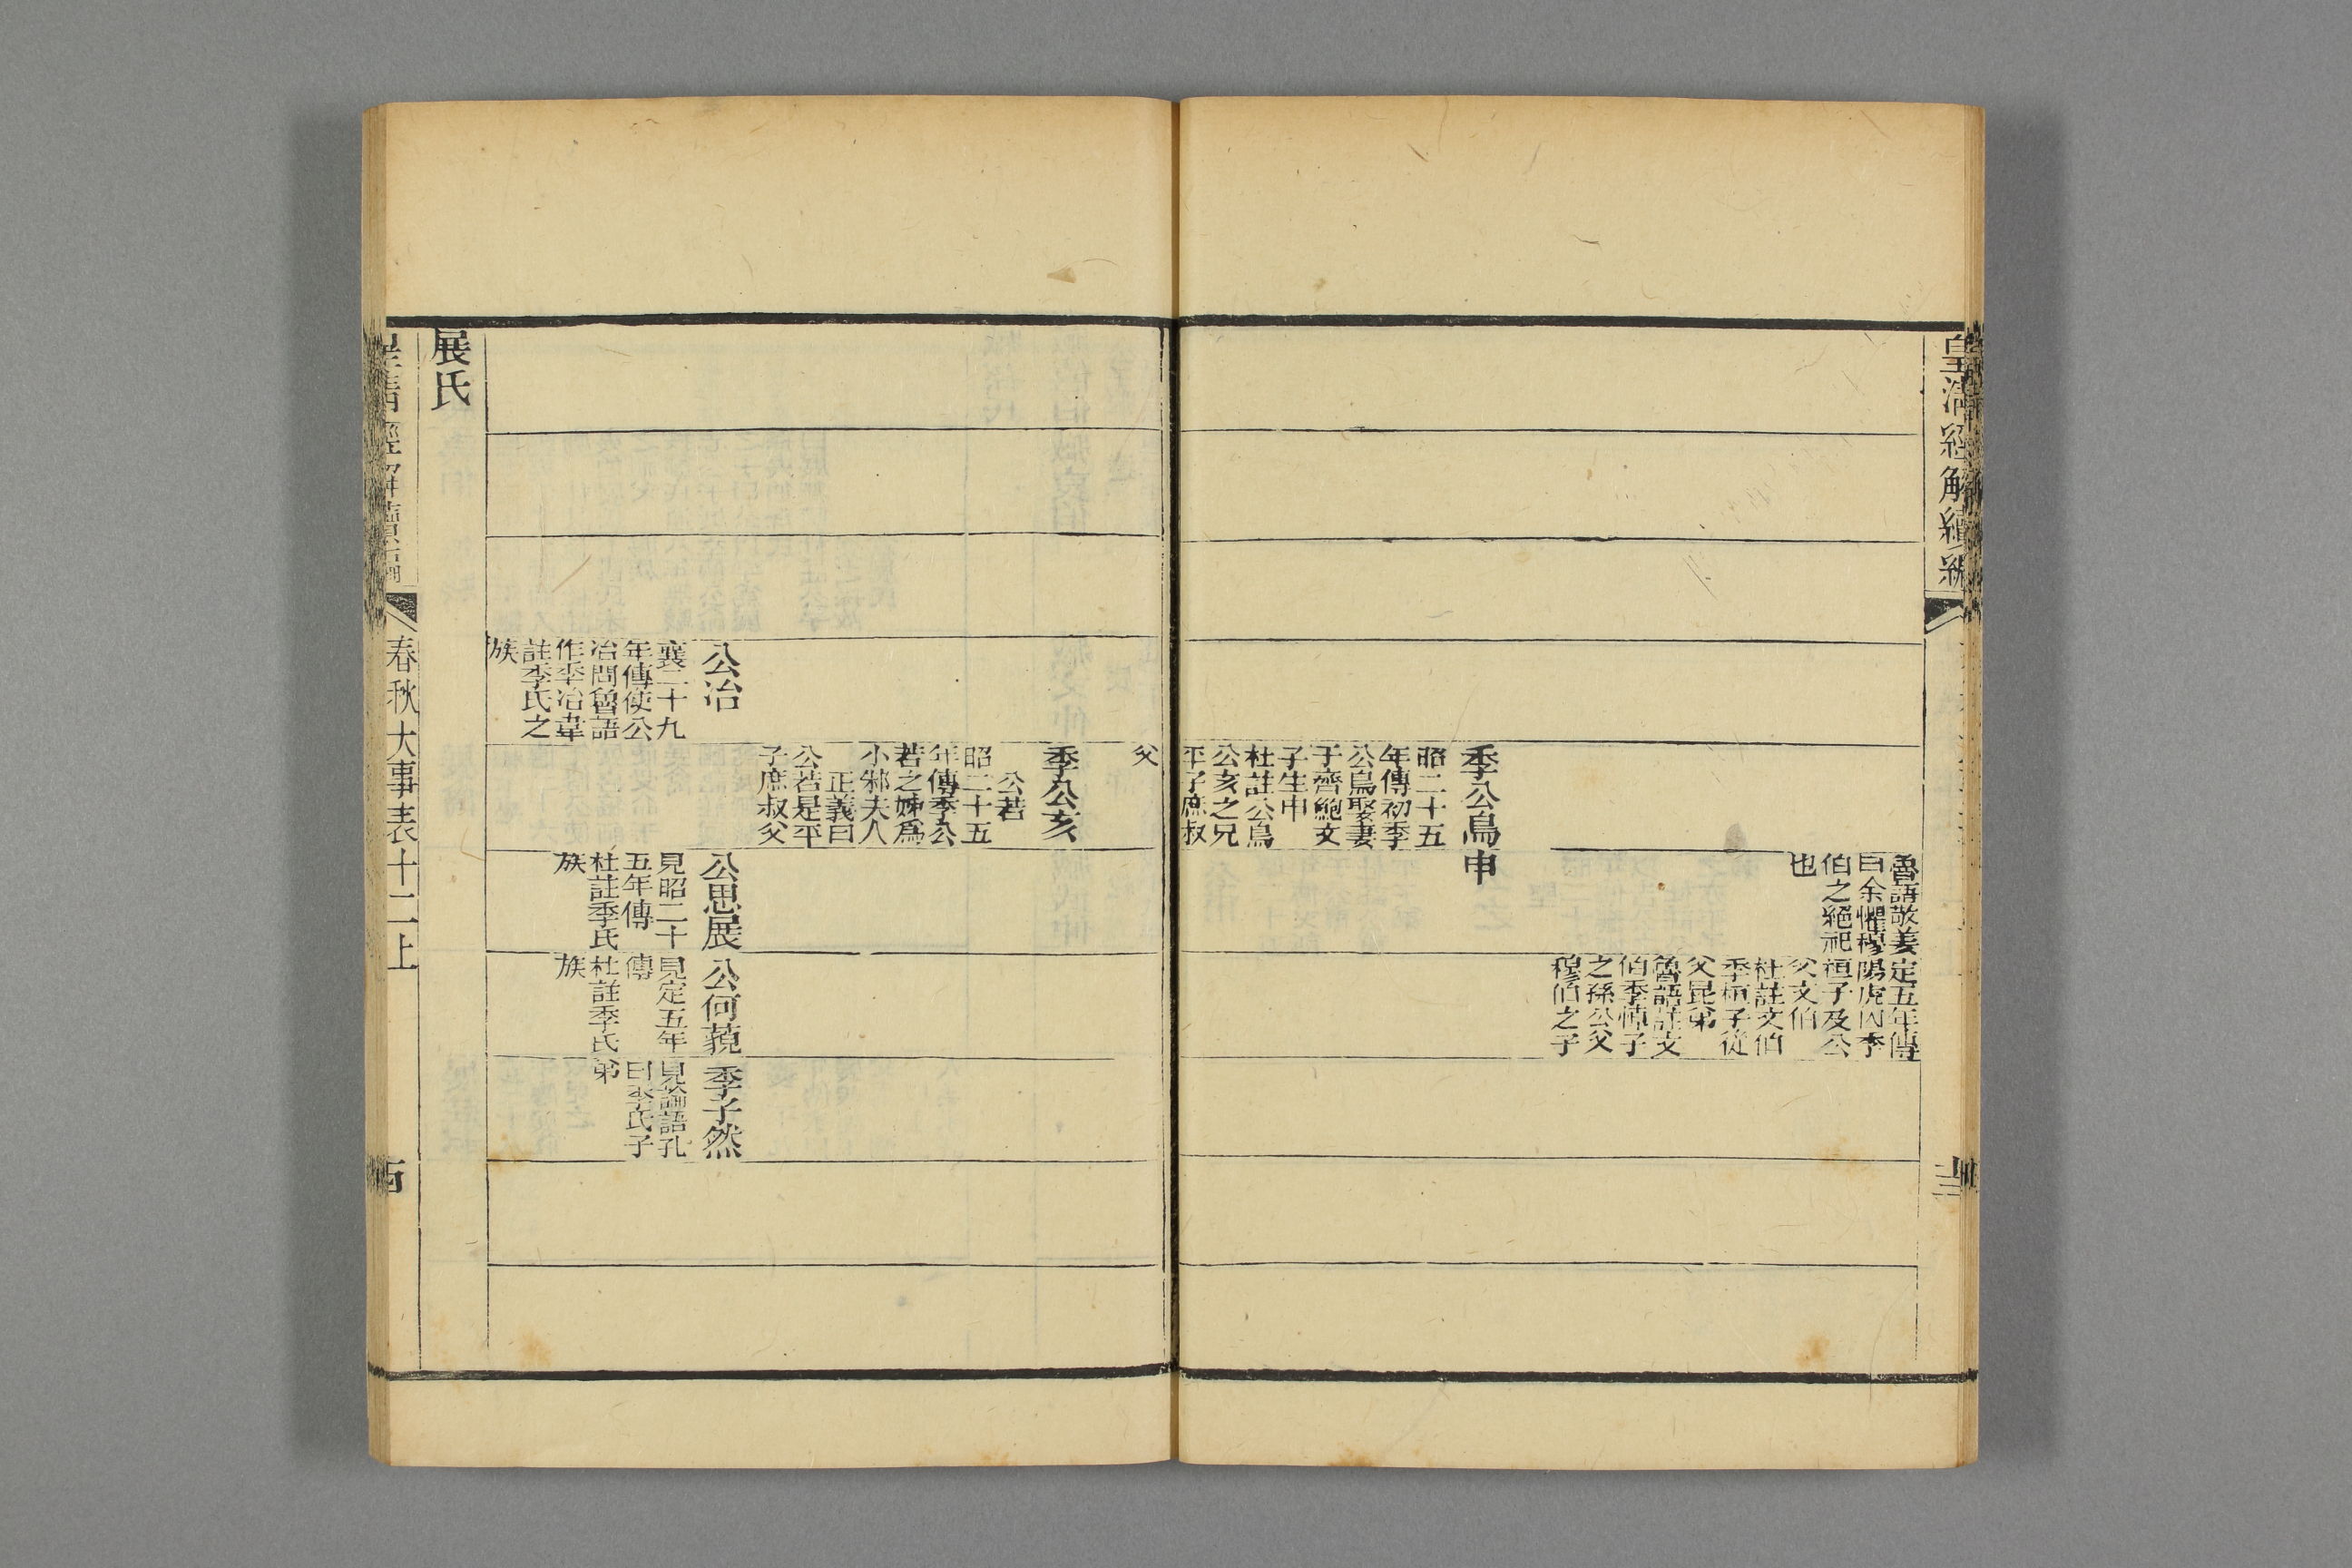 皇清經解續編
魯語敬姜
曰余懼穆
伯之絕祀
也
定五年傳
陽虎囚季
桓子及公
父文伯
杜註文伯
季桓子從
父昆弟
魯語註文
伯季悼子
之孫公父
穆伯之子
季公鳥
申
昭二十五
年傳初季
公鳥娶妻
于齊鮑文
子生申
杜註公鳥
公亥之兄
平子庶叔
父
季公亥
公若
昭二十五
年傳季公
若之姊為
小邾夫人
正義曰
公若是平
子庶叔父
公冶
襄二十九
年傳使公
冶問魯語
作季冶韋
註季氏之
族
公思展
見昭二十
五年傳
杜註季氏
族
公何藐
見定五年
傳
杜註季氏
族
季子然
見論語孔
曰季氏子
弟
展氏
春秋大事表十二上